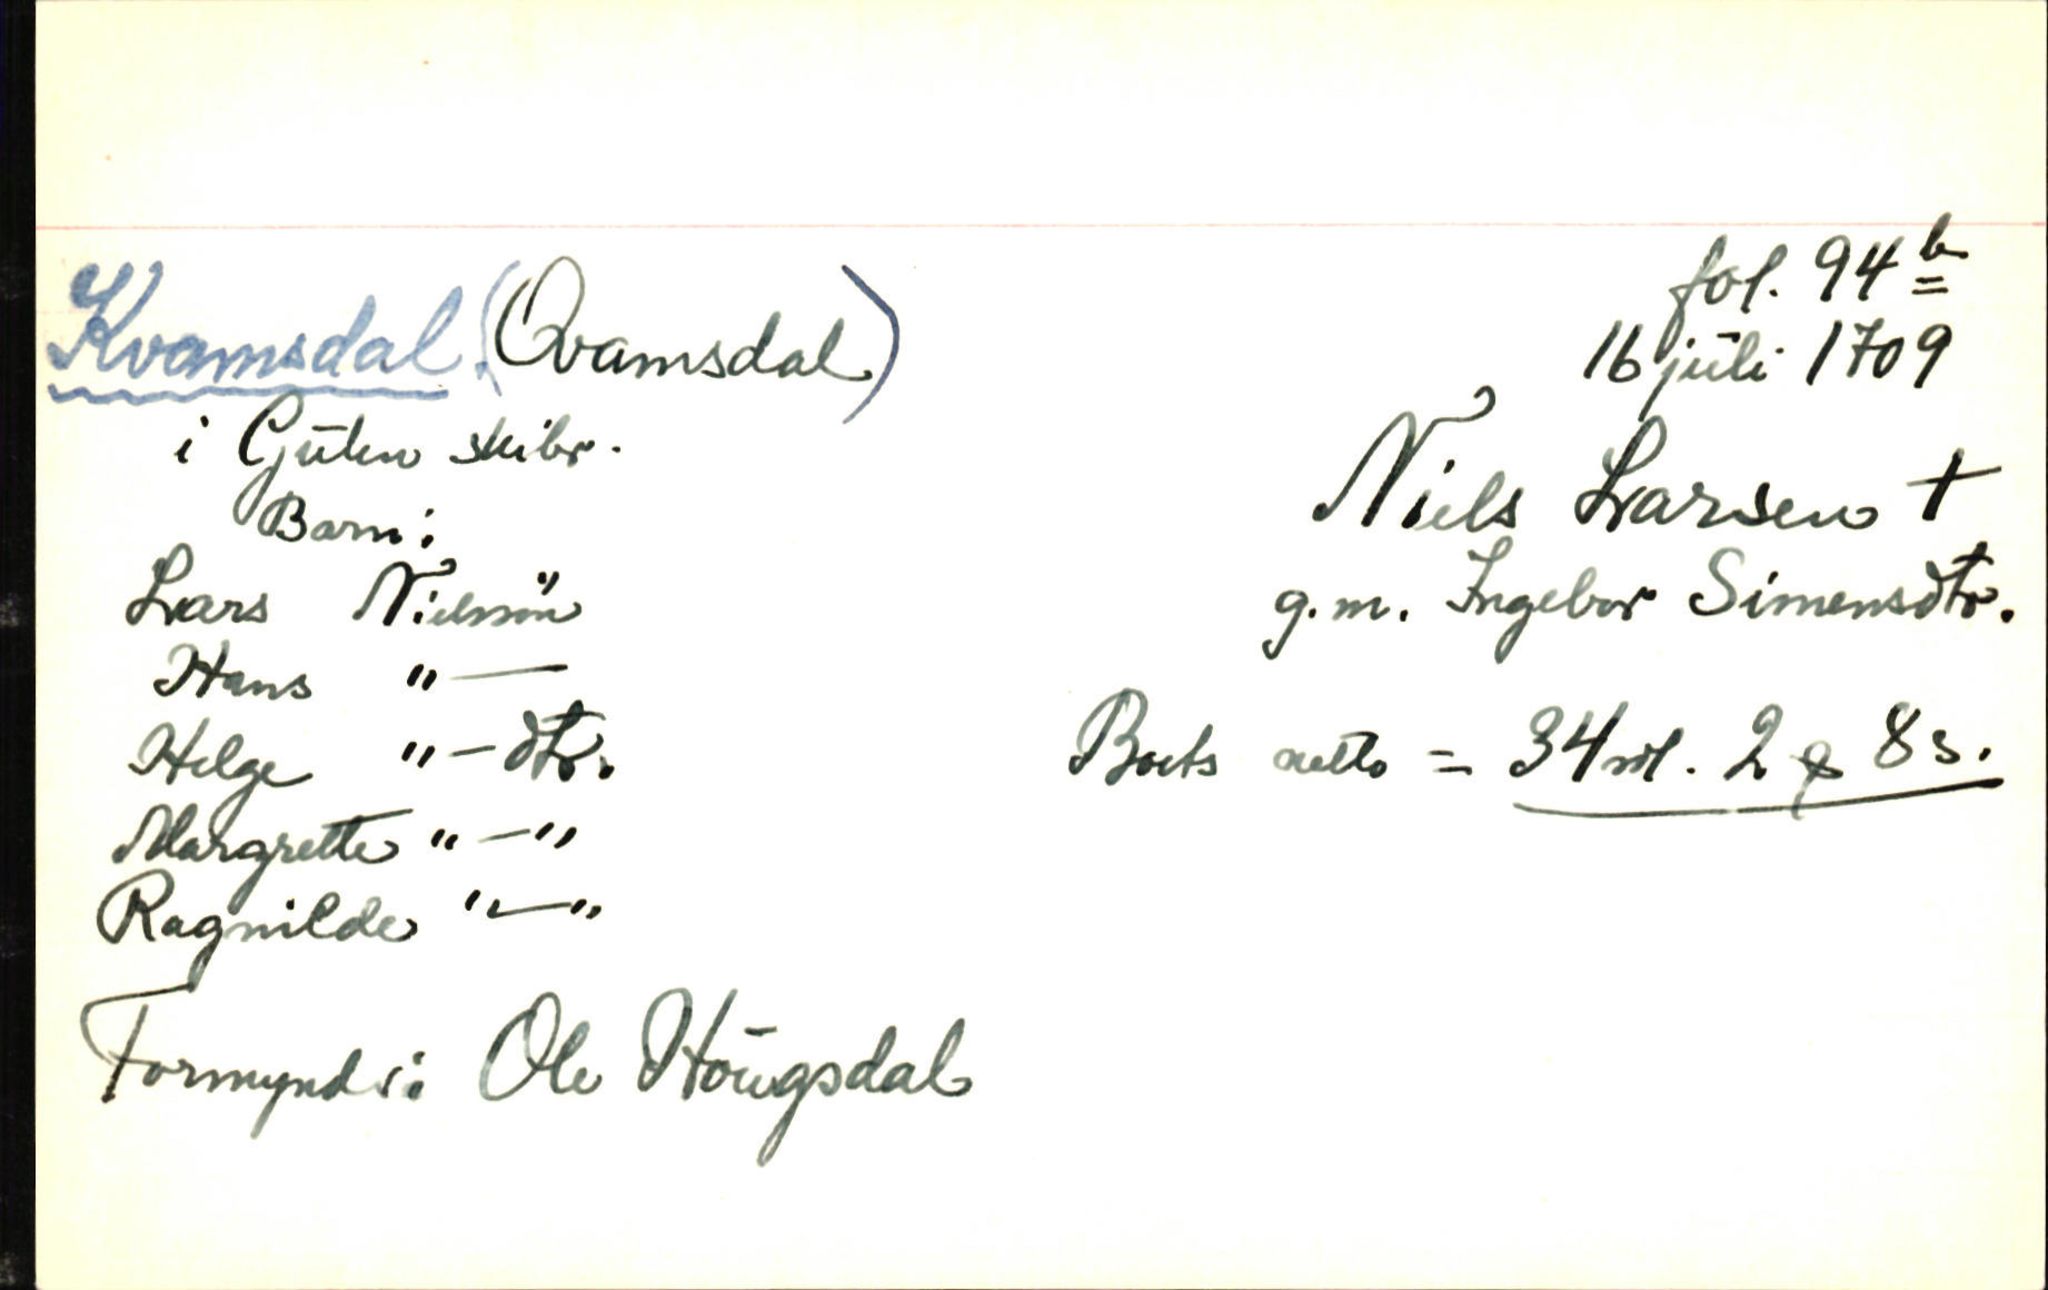 fol. 94 b
Kvamsdal (Qvamsdal)
16 jūli 1709
i Gūlen skibr.
Niels Larsen †
Barn:
g.m. Ingebor Simensdtr.
Lars Nielssön
Hans " —
Boets netto = 34 rdl. 2 8 s.
Helge " — dtr.
Margrette " — "
Ragnilde " — "
Formynder: Ole Hoūgsdal